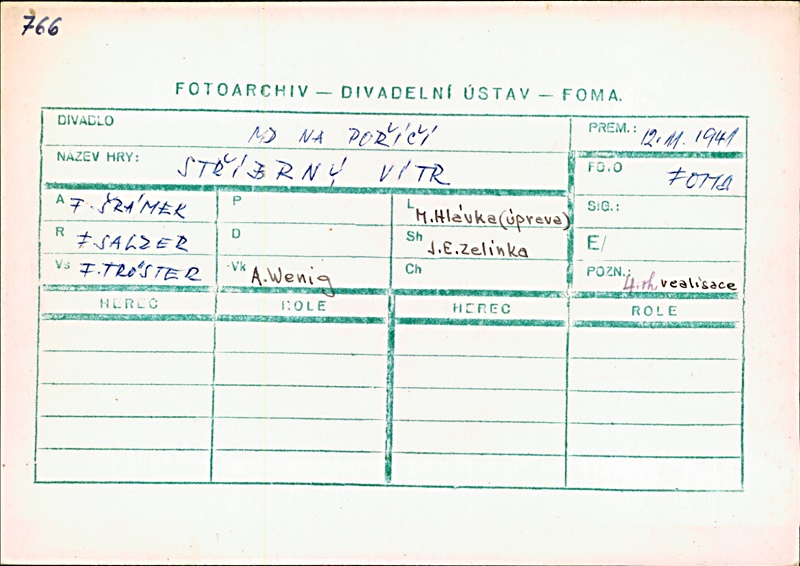 766
FOTOARCHIV — DIVADELNÍ ÚSTAV — FOMA.
DIVADLO MD NA POŘÍČÍ PREM.: 12.11.1941
NÁZEV HRY: STŘÍBRNÝ VÍTR FOTO FOMA
A F. ŠRÁMEK P L M.Hlávka (úprava) SIG.:
R F. SALZER D Sh J.E.Zelinka E/
Vs F. TRÖSTER Vk A.Wenig Ch POZN.: 4.rh. realisace
HEREC ROLE HEREC ROLE